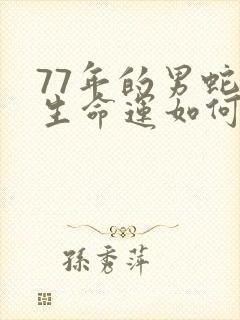 77年的男蛇
生命運如何
孫秀萍